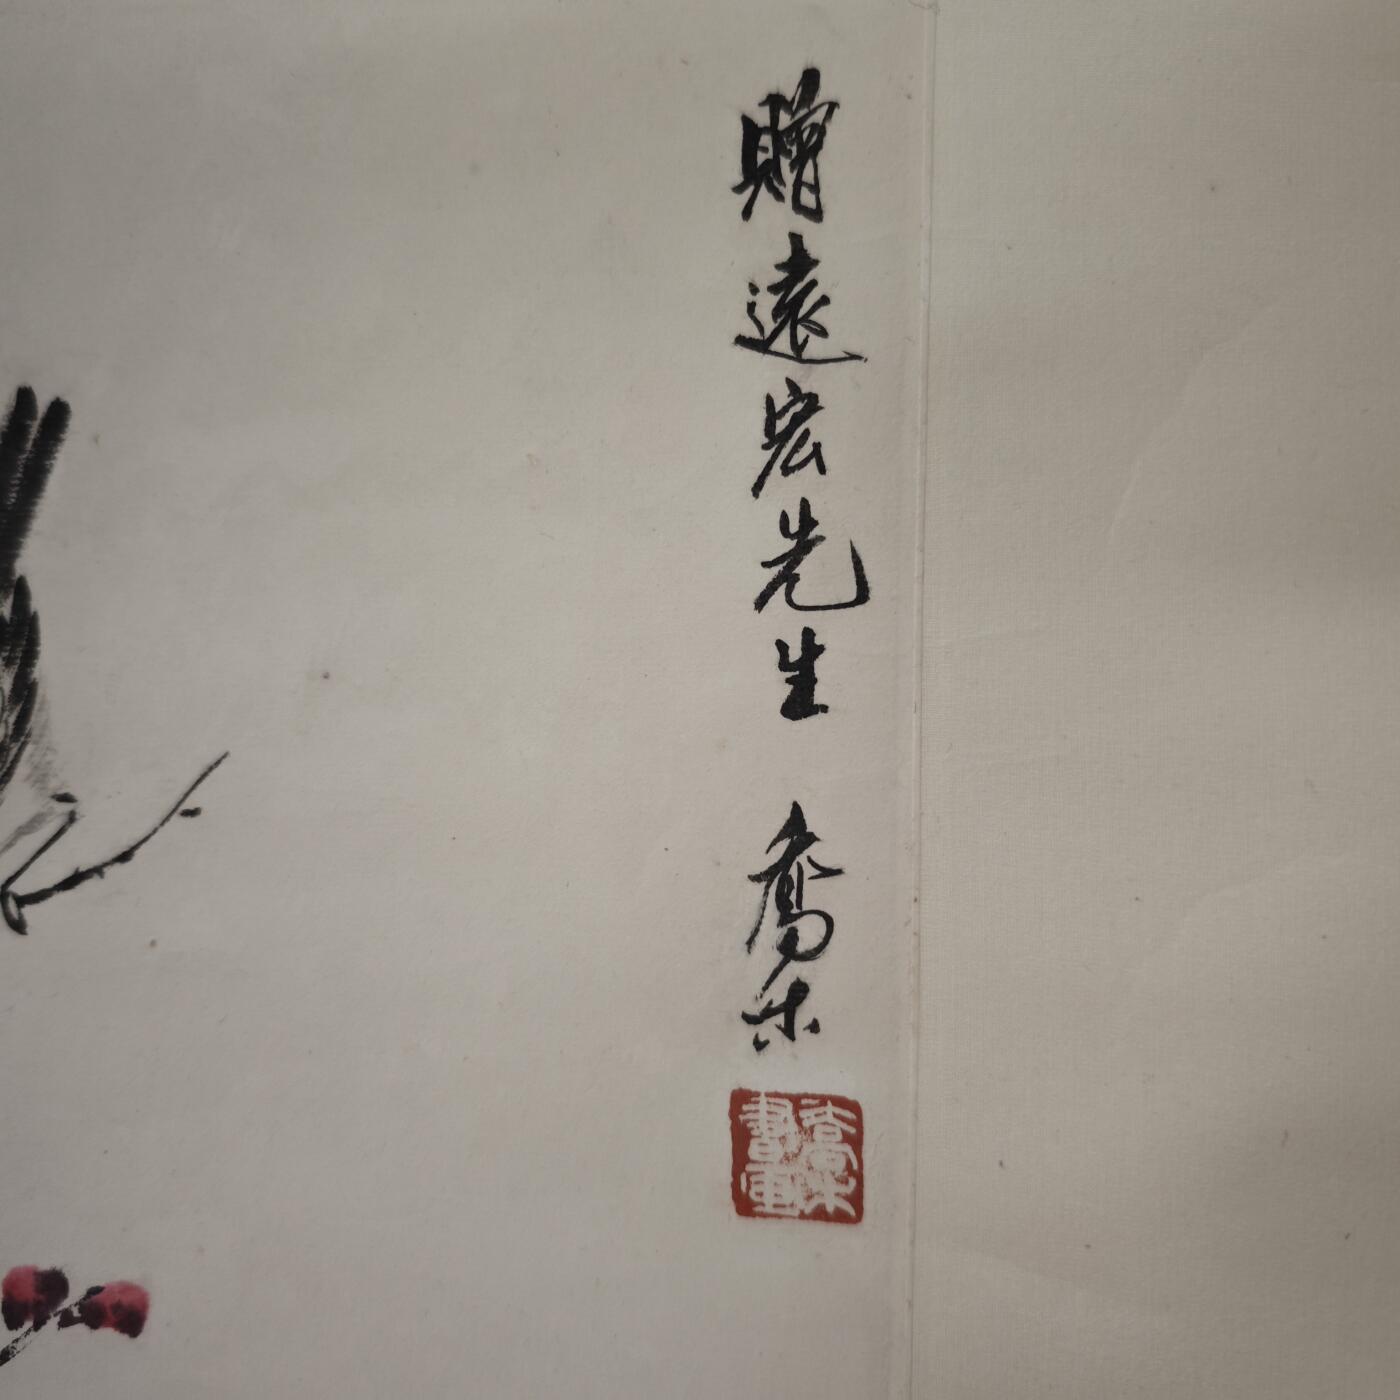 贈遠宏先生 喬木
喬木書畫